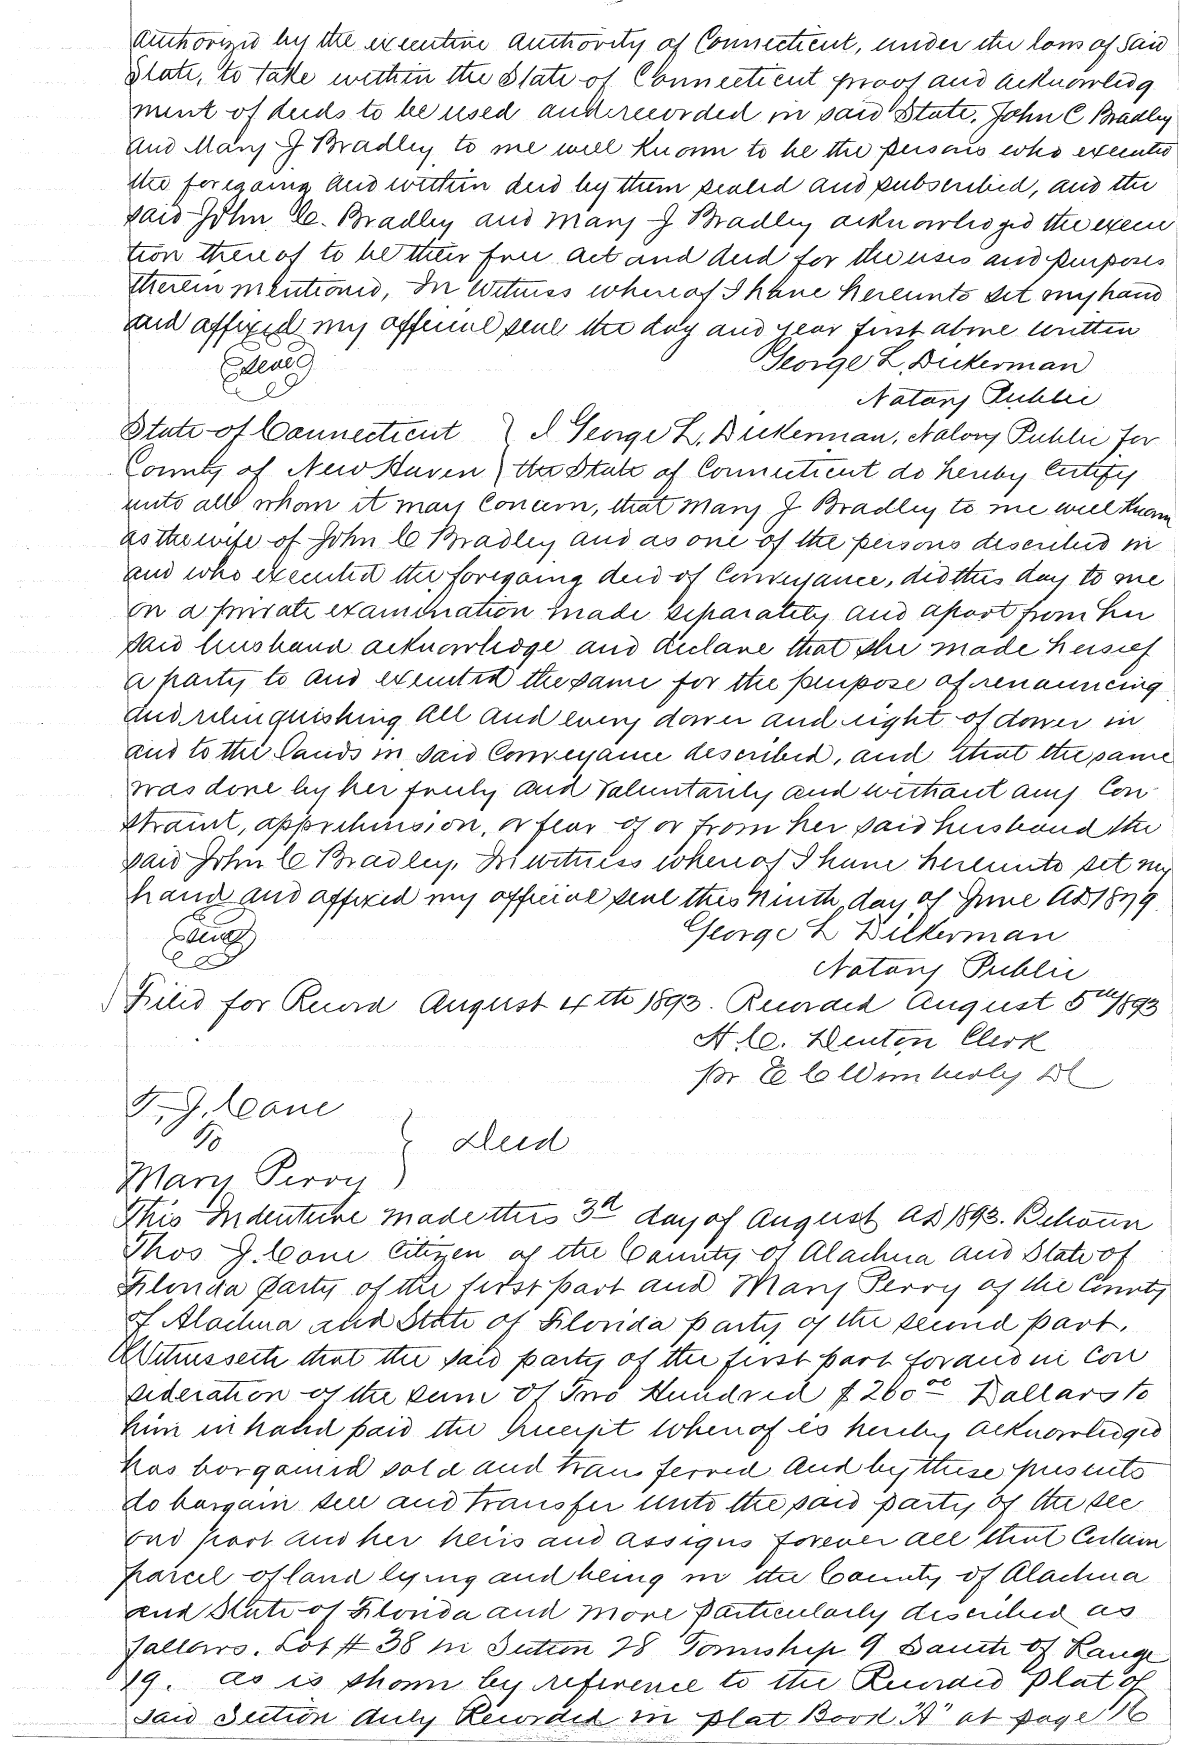 authorized by the executive authority of Connecticut, under the laws of said
State, to take within the State of Connecticut proof and acknowledg
ment of deeds to be used and recorded in said State, John C Bradley
and Mary J Bradley to me well known to be the persons who executed
the foregoing and within deed by them sealed and subscribed, and the
said John C. Bradley and Mary J Bradley acknowledged the execu
tion thereof to be their free act and deed for the uses and purposes
therein mentioned, In Witness whereof I have hereunto set my hand
and affixed my official seal the day and year first above written
Seal George L. Dickerman
Notary Public
State of Connecticut } I George L. Dickerman, Notary Public for
County of New Haven } the State of Connecticut do hereby Certify
unto all whom it may Concern, that Mary J Bradley to me well known
as the wife of John C Bradley and as one of the persons described in
and who executed the foregoing deed of Conveyance, did this day to me
on a private examination made separately and apart from her
said husband acknowledge and declare that she made herself
a party to and executed the same for the purpose of renouncing
and relinquishing all and every dower and right of dower in
and to the lands in said Conveyance described, and that the same
was done by her freely and voluntarily and without any Con
straint, apprehension, or fear of or from her said husband the
said John C Bradley, In witness whereof I have hereunto set my
hand and affixed my official seal this Ninth day of June AD 1879
Seal George L Dickerman
Notary Public
Filed for Record August 4th 1893. Recorded August 5th 1893
H. C. Denton Clerk
pr E C Wimberly DC
T. J. Cane
To } Deed
Mary Perry
This Indenture made this 3d day of August AD 1893. Between
Thos J. Cane Citizen of the County of Alachua and State of
Florida party of the first part and Mary Perry of the County
of Alachua and State of Florida party of the second part.
Witnesseth that the said party of the first part for and in Con
sideration of the sum of Two Hundred $ 200 00 Dollars to
him in hand paid the receipt whereof is hereby acknowledged
has bargained sold and transferred and by these presents
do bargain sell and transfer unto the said party of the sec
ond part and her heirs and assigns forever all that Certain
parcel of land lying and being in the County of Alachua
and State of Florida and more particularly described as
follows. Lot # 38 in Section 28 Township 9 South of Range
19. as is shown by reference to the Recorded Plat of
said Section duly Recorded in plat Book "A" at page 16